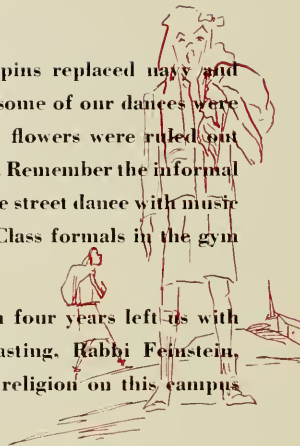 pins replaced navy and
some of our dances were
flowers were ruled out
. Remember the informal
e street dance with music
Class formals in the gym
n four years left us with
asting. Rabbi Feinstein,
religion on this campus